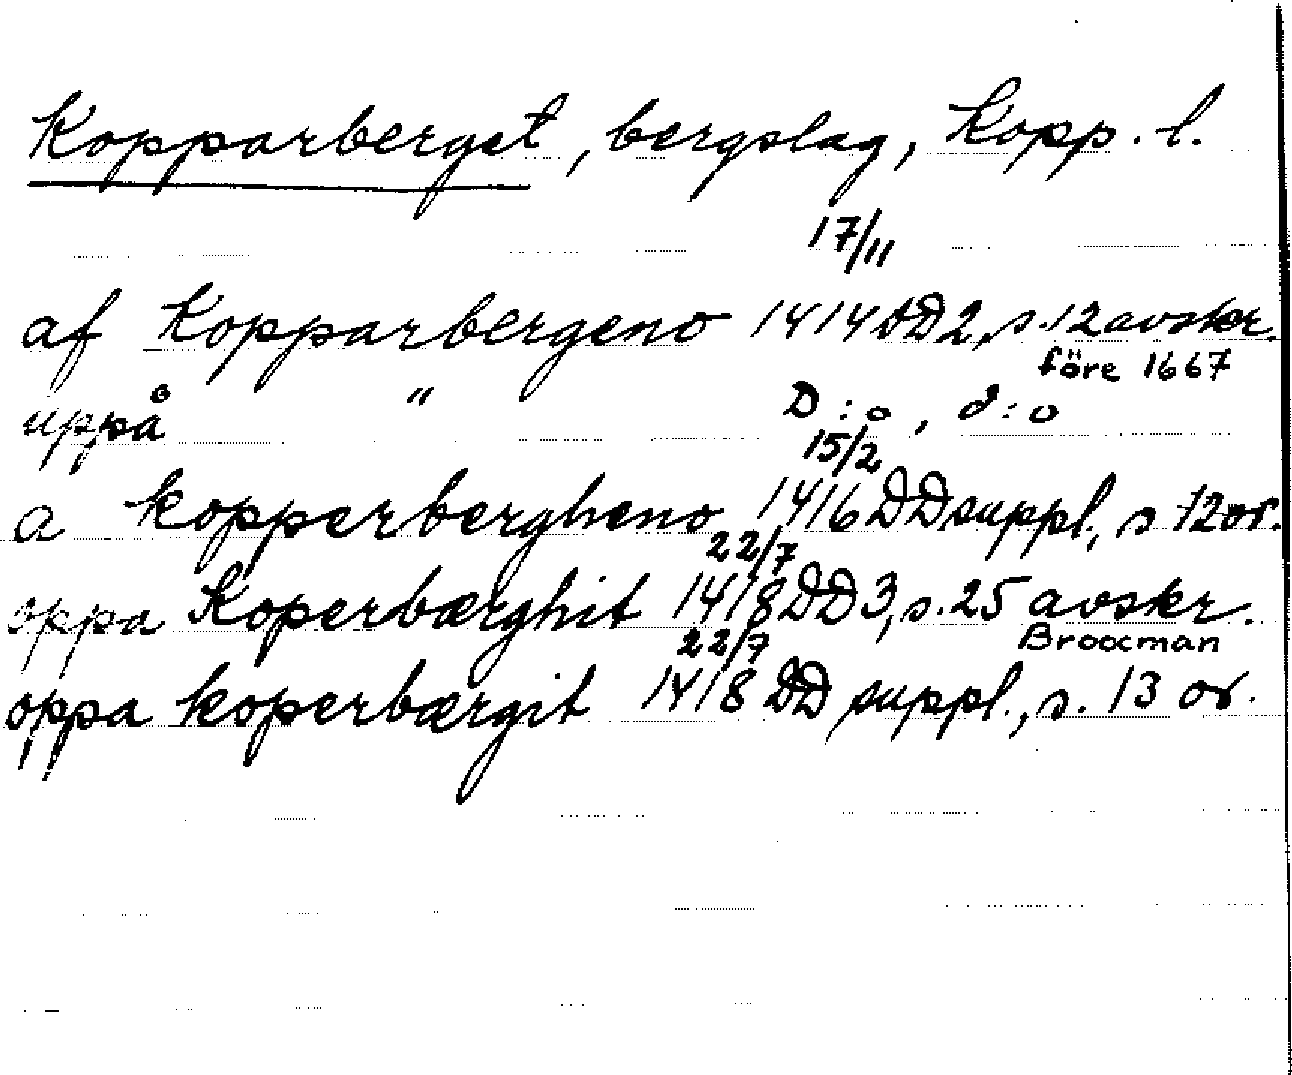 Kopparberget, bergslag, Kopp. l.
17/11
af Kopparbergeno 1414 DD2, s. 12 avskr.
före 1667
uppå " D:o, d:o
15/2
a kopperbergheno 1416 DD suppl., s 12 or.
22/7
oppa Koperbærghit 1418 DD3, s. 25 avskr.
Broocman
22/7
oppa koperbærgit 1418 DD suppl., s. 13 or.